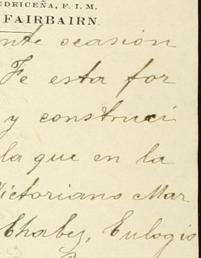 EDRICEÑA, F. I. M.
FAIRBAIRN.
nte ocasión
Fe esta for
y construcí
la que en la
Victoriano Mar
Chabes, Eulogio